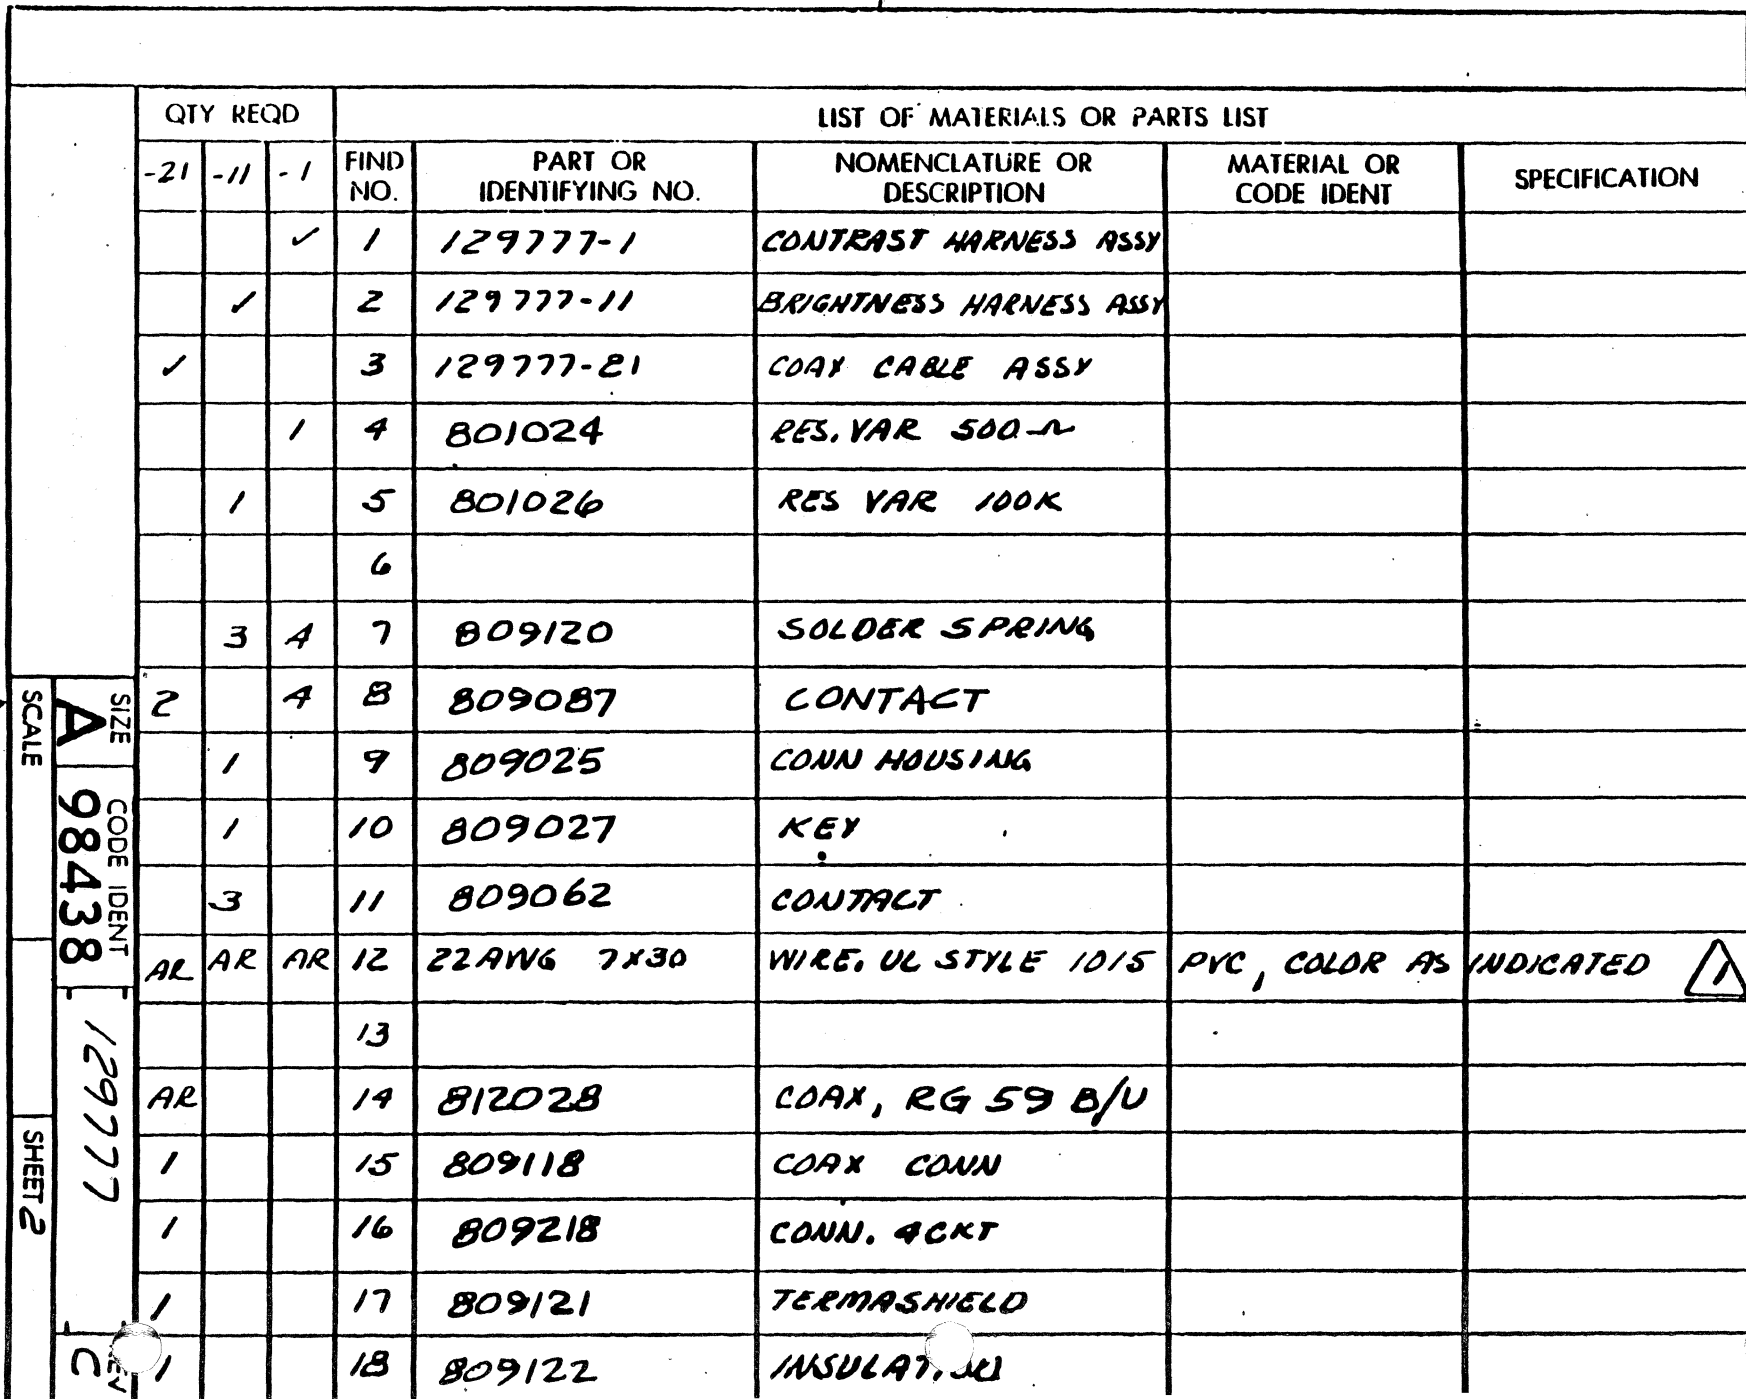 QTY REQD LIST OF MATERIALS OR PARTS LIST
-21 -11 -1 FIND NO. PART OR IDENTIFYING NO. NOMENCLATURE OR DESCRIPTION MATERIAL OR CODE IDENT SPECIFICATION
✓ 1 129777-1 CONTRAST HARNESS ASSY
✓ 2 129777-11 BRIGHTNESS HARNESS ASSY
✓ 3 129777-21 COAX CABLE ASSY
1 4 801024 RES. VAR 500 Ω
1 5 801026 RES VAR 100K
6
3 4 7 809120 SOLDER SPRING
2 4 8 809087 CONTACT
1 9 809025 CONN HOUSING
1 10 809027 KEY
3 11 809062 CONTACT
AR AR AR 12 22 AWG 7X30 WIRE, UL STYLE 1015 PVC, COLOR AS INDICATED 1
13
AR 14 812028 COAX, RG 59 B/U
1 15 809118 COAX CONN
1 16 809218 CONN. 4CKT
1 17 809121 TERMASHIELD
1 18 809122 INSULATION
SIZE A CODE IDENT 98438 129777 REV C
SCALE SHEET 2